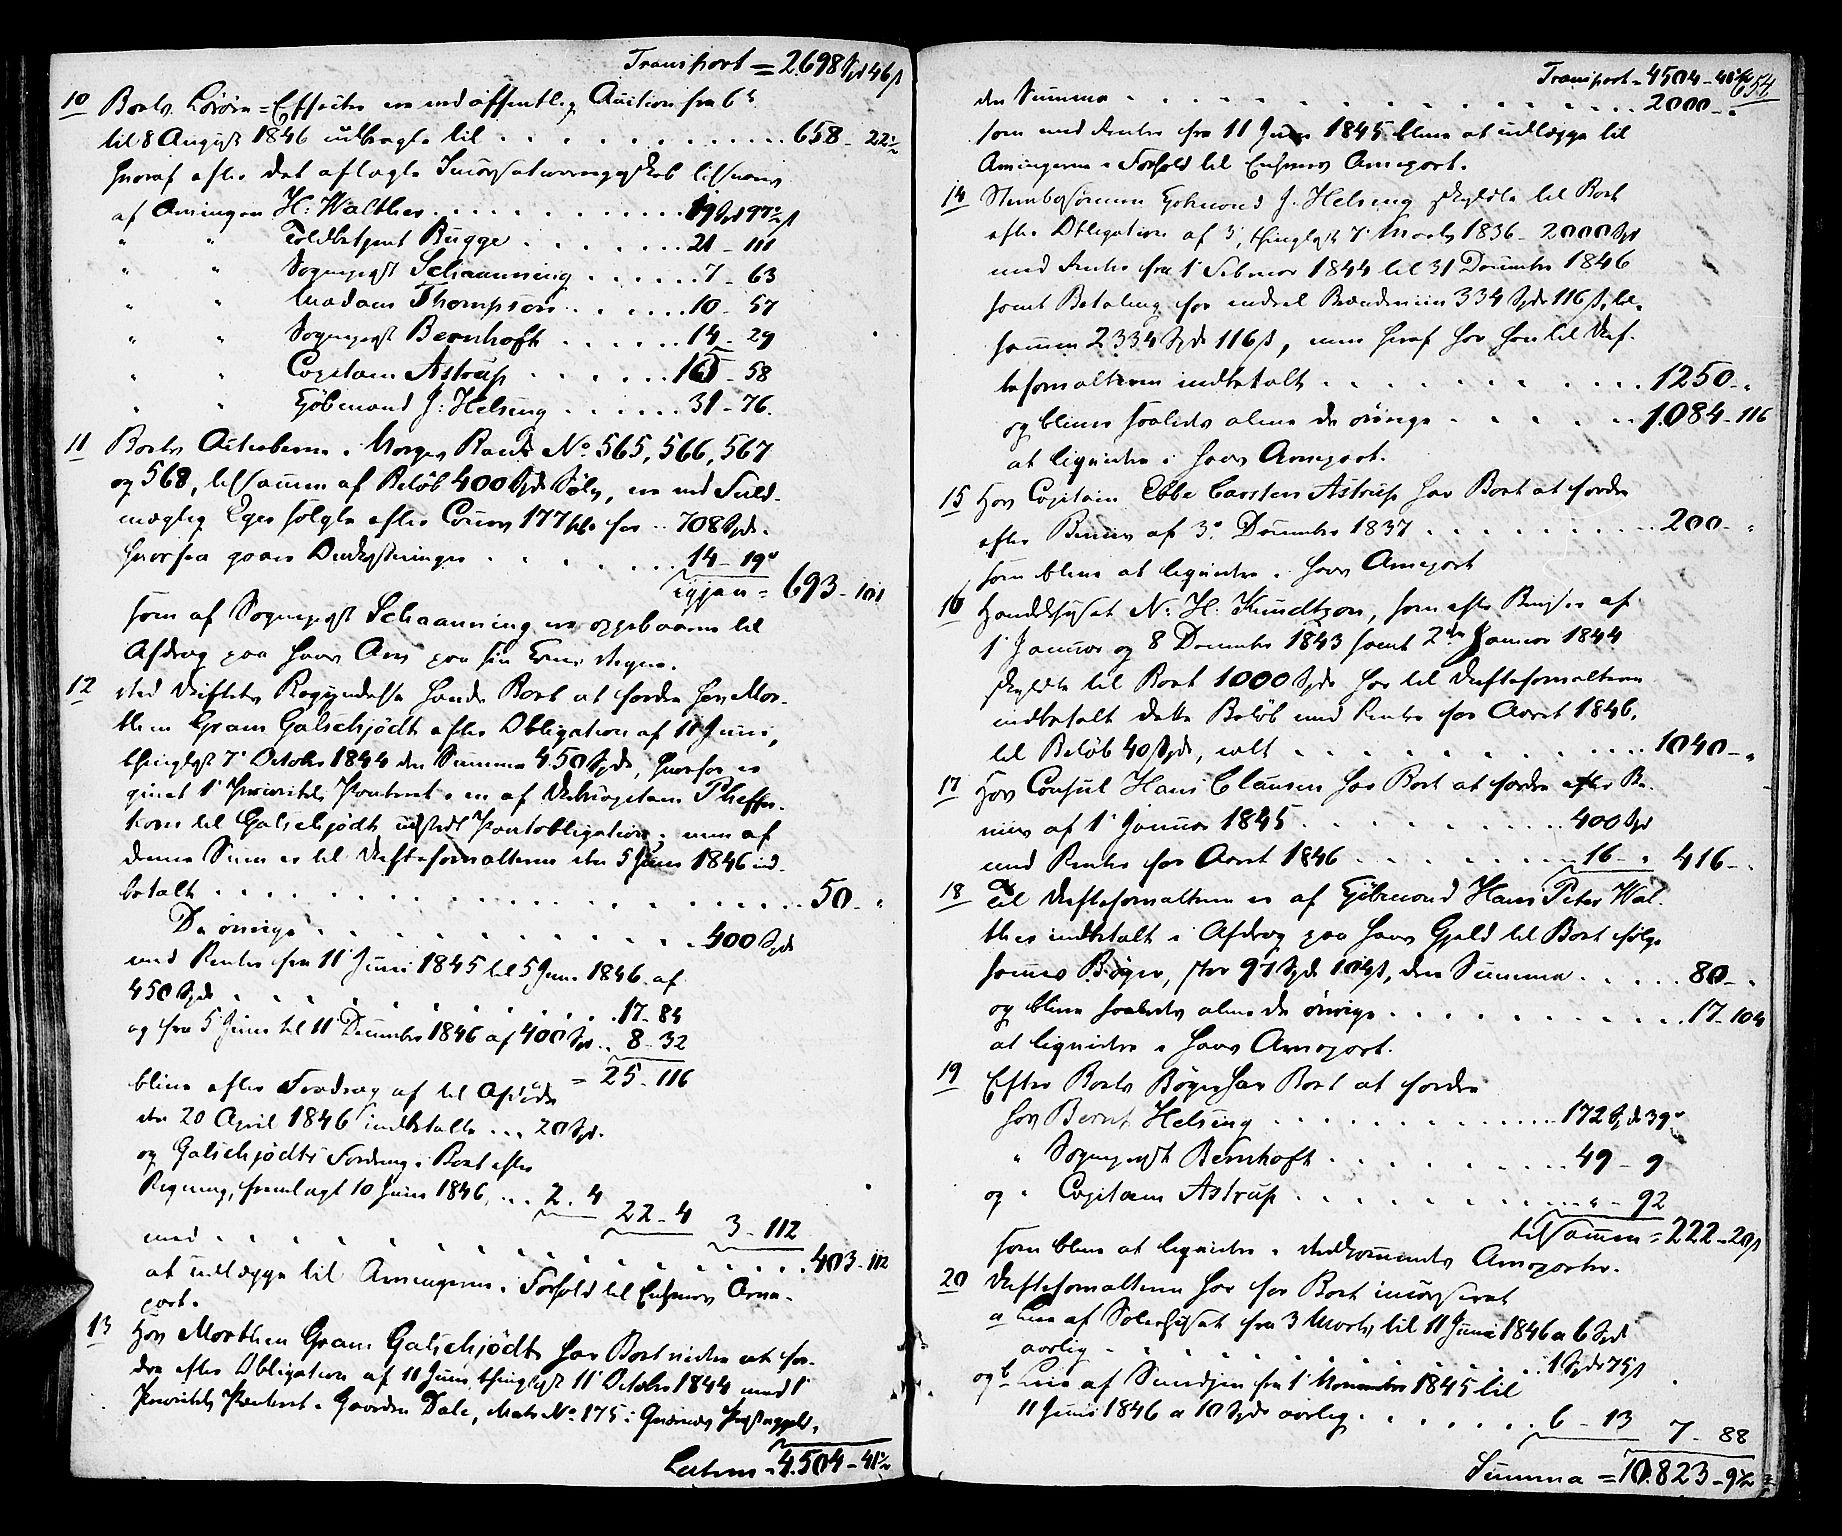 Transport = 2698 Spd 46 ß
10 Boets Løsøre-Effecter ere ved offentlig Auction fra 6te
til 8 August 1846 udbragte til . . . 658 - 22½
hvoraf efter det aflagte Incassationsregnskab tilsvares
af Arvingen H: Walther . . . 19 Spd 97½ ß
" " Toldbetjent Bugge . . . 21 - 111
" " Sogneprest Schaanning . . . 7 - 63
" " Madam Thompson . . . 10 - 57
" " Sogneprest Bernhoft . . . 14 - 29
" " Capitain Astrup . . . 165 - 58
" " Kjøbmand J: Helsing . . . 31 - 76.
11 Boets Actiebreve i Norges Bank No 565, 566, 567
og 568, tilsammen af Beløb 400 Spd Sølv, ere ved Fuld-
mægtig Eger solgte efter Cours 177 for . . 708 Spd.
hvorfra gaaer Omkostninger . . . 14 - 19
igjen = 693 - 101
som af Sogneprest Schaanning ere oppebaaren til
Afdrag paa hans Arv paa sin Kones Vegne.
12 Ved Skiftets Begyndelse havde Boet at fordre hos Mor-
then Gram Galschjødt efter Obligation af 11 Juni,
thinglyst 7 October 1844 den Summa 450 Spd, hvorfor er
givet 1 Prioritets Panteret i en af Skibscapitain Pheffer-
korn til Galschjødt udstedt Pantobligation; men af
denne Sum er til Skifteforvalteren den 5 Juni 1846 ind-
betalt . . . 50 - "
De øvrige . . . 400 Spd
med Renter fra 11 Juni 1845 til 5 Juni 1846 af
450 Spd . . . 17 - 84
og fra 5 Juni til 11 December 1846 af 400 Spd . . 8 - 32
= 25 - 116
blive efter Fradrag af til
den 20 April 1846 indbetalte . . . 20 Spd.
og Galschjødts Fordring i Boet efter
Regning, fremlagt 10 Juni 1846, . . . 2 - 4
22 - 4 3 - 112
med . . . 403 - 112
at udlægge til Arvingerne i Forhold til Enhvers Arve-
port.
13 Hos Morthen Gram Galschjødt har Boet videre at for-
dre efter Obligation af 11 Juni, thinglyst 11 October 1844 med 1
Prioritets Panteret i Gaarden Dale, Matr. No 175 i Qværnes Præstegjeld,
Latus = 4.504 - 41½
Transport - 4504 - 41½
654
den Summa . . . 2000 - "
som med Renter fra 11 Juni 1845 blive at udlægge til
Arvingerne i Forhold til Enhvers Arveport.
14 Kjøbmand J. Helsing skyldte til Boet
efter Obligation af 3, thinglyst 7 Marts 1836 - 2000 Spd
med Renter fra 1 Februar 1844 til 31 December 1846
samt Betaling for endeel Brændeviin 334 Spd 116 ß, til-
sammen 2334 Spd 116 ß, men heraf har han til Skif-
teforvalteren indbetalt . . . 1250 - "
og bliver saaledes alene de øvrige . . . 1084 - 116
at liquidere i hans Arveport.
15 Hos Capitain Ebbe Carsten Astrup har Boet at fordre
efter Beviis af 3 December 1837 . . . 200 - "
som blive at liquidere i hans Arveport
16 Handelshuset N: H: Knudtzon, som efter Beviser af
1 Januar og 8 December 1843 samt 2den Januar 1844
skyldte til Boet 1000 Spd har til Skifteforvalteren
indbetalt dette Beløb med Renter for Aaret 1846,
til Beløb 40 Spd, ialt . . . 1040 - "
17 Hos Consul Hans Clausen har Boet at fordre efter Be-
viis af 1 Januar 1845 . . . 400 Spd
med Renter for Aaret 1846 . . . 16 - " 416 - "
18 Til Skifteforvalteren er af Kjøbmand Hans Peter Wal-
ther indbetalt i Afdrag paa hans Gjeld til Boet ifølge
sammes Bøger, stor 97 Spd 104 ß, den Summa . . . 80 - "
og blive saaledes alene de øvrige . . . 17 - 104
at liquidere i hans Arveport.
19 Efter Boets Bøger har Boet at fordre
hos Bernt Helsing . . . 172 Spd 39
" Sogneprest Bernhoft . . . 49 - 9
og " Capitain Astrup . . . " - 92
tilsammen = 222 - 20 ß
som blive at liquidere i Vedkommendes Arveporter.
20 Skifteforvalteren har for Boet incasseret
a Leie af fra 3 Marts til 11 Juni 1846 a 6 Spd
aarlig . . . 1 Spd 75 ß
og b Leie af fra 1 November 1845 til
11 Juni 1846 a 10 Spd aarlig . . . 6 - 13 7 - 88
Summa = 10.823 - 9½